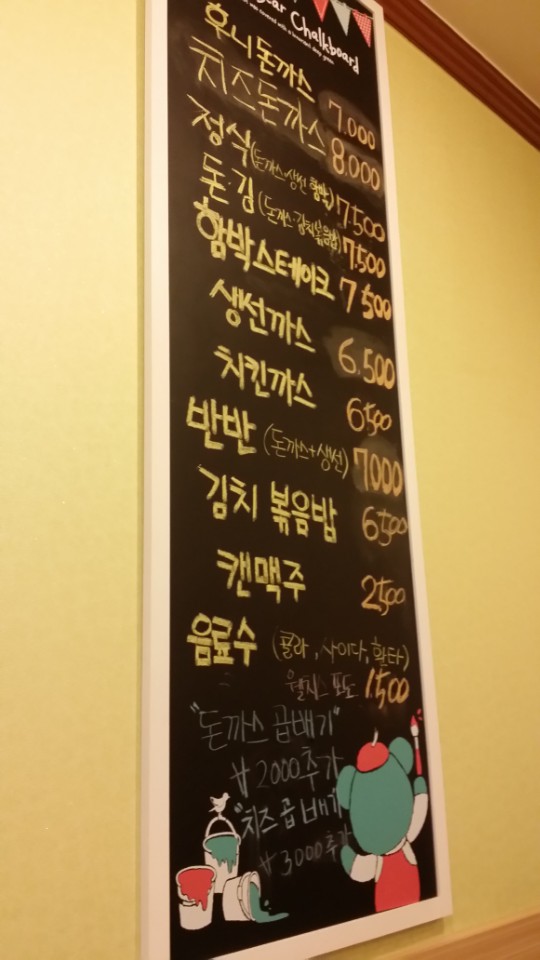 Chalkboard
후니돈까스 7.000
치즈돈까스 8.000
정식(돈까스+생선 함박) 7.500
돈·김(돈까스·김치볶음밥) 7.500
함박스테이크 7500
생선까스 6.500
치킨까스 6500
반반 (돈까스+생선) 7000
김치 볶음밥 6500
캔맥주 2500
음료수 (콜라, 사이다, 환타)
웰치스 포도 1.500
"돈까스 곱배기"
₩2000추가
"치즈 곱배기"
₩3000추가